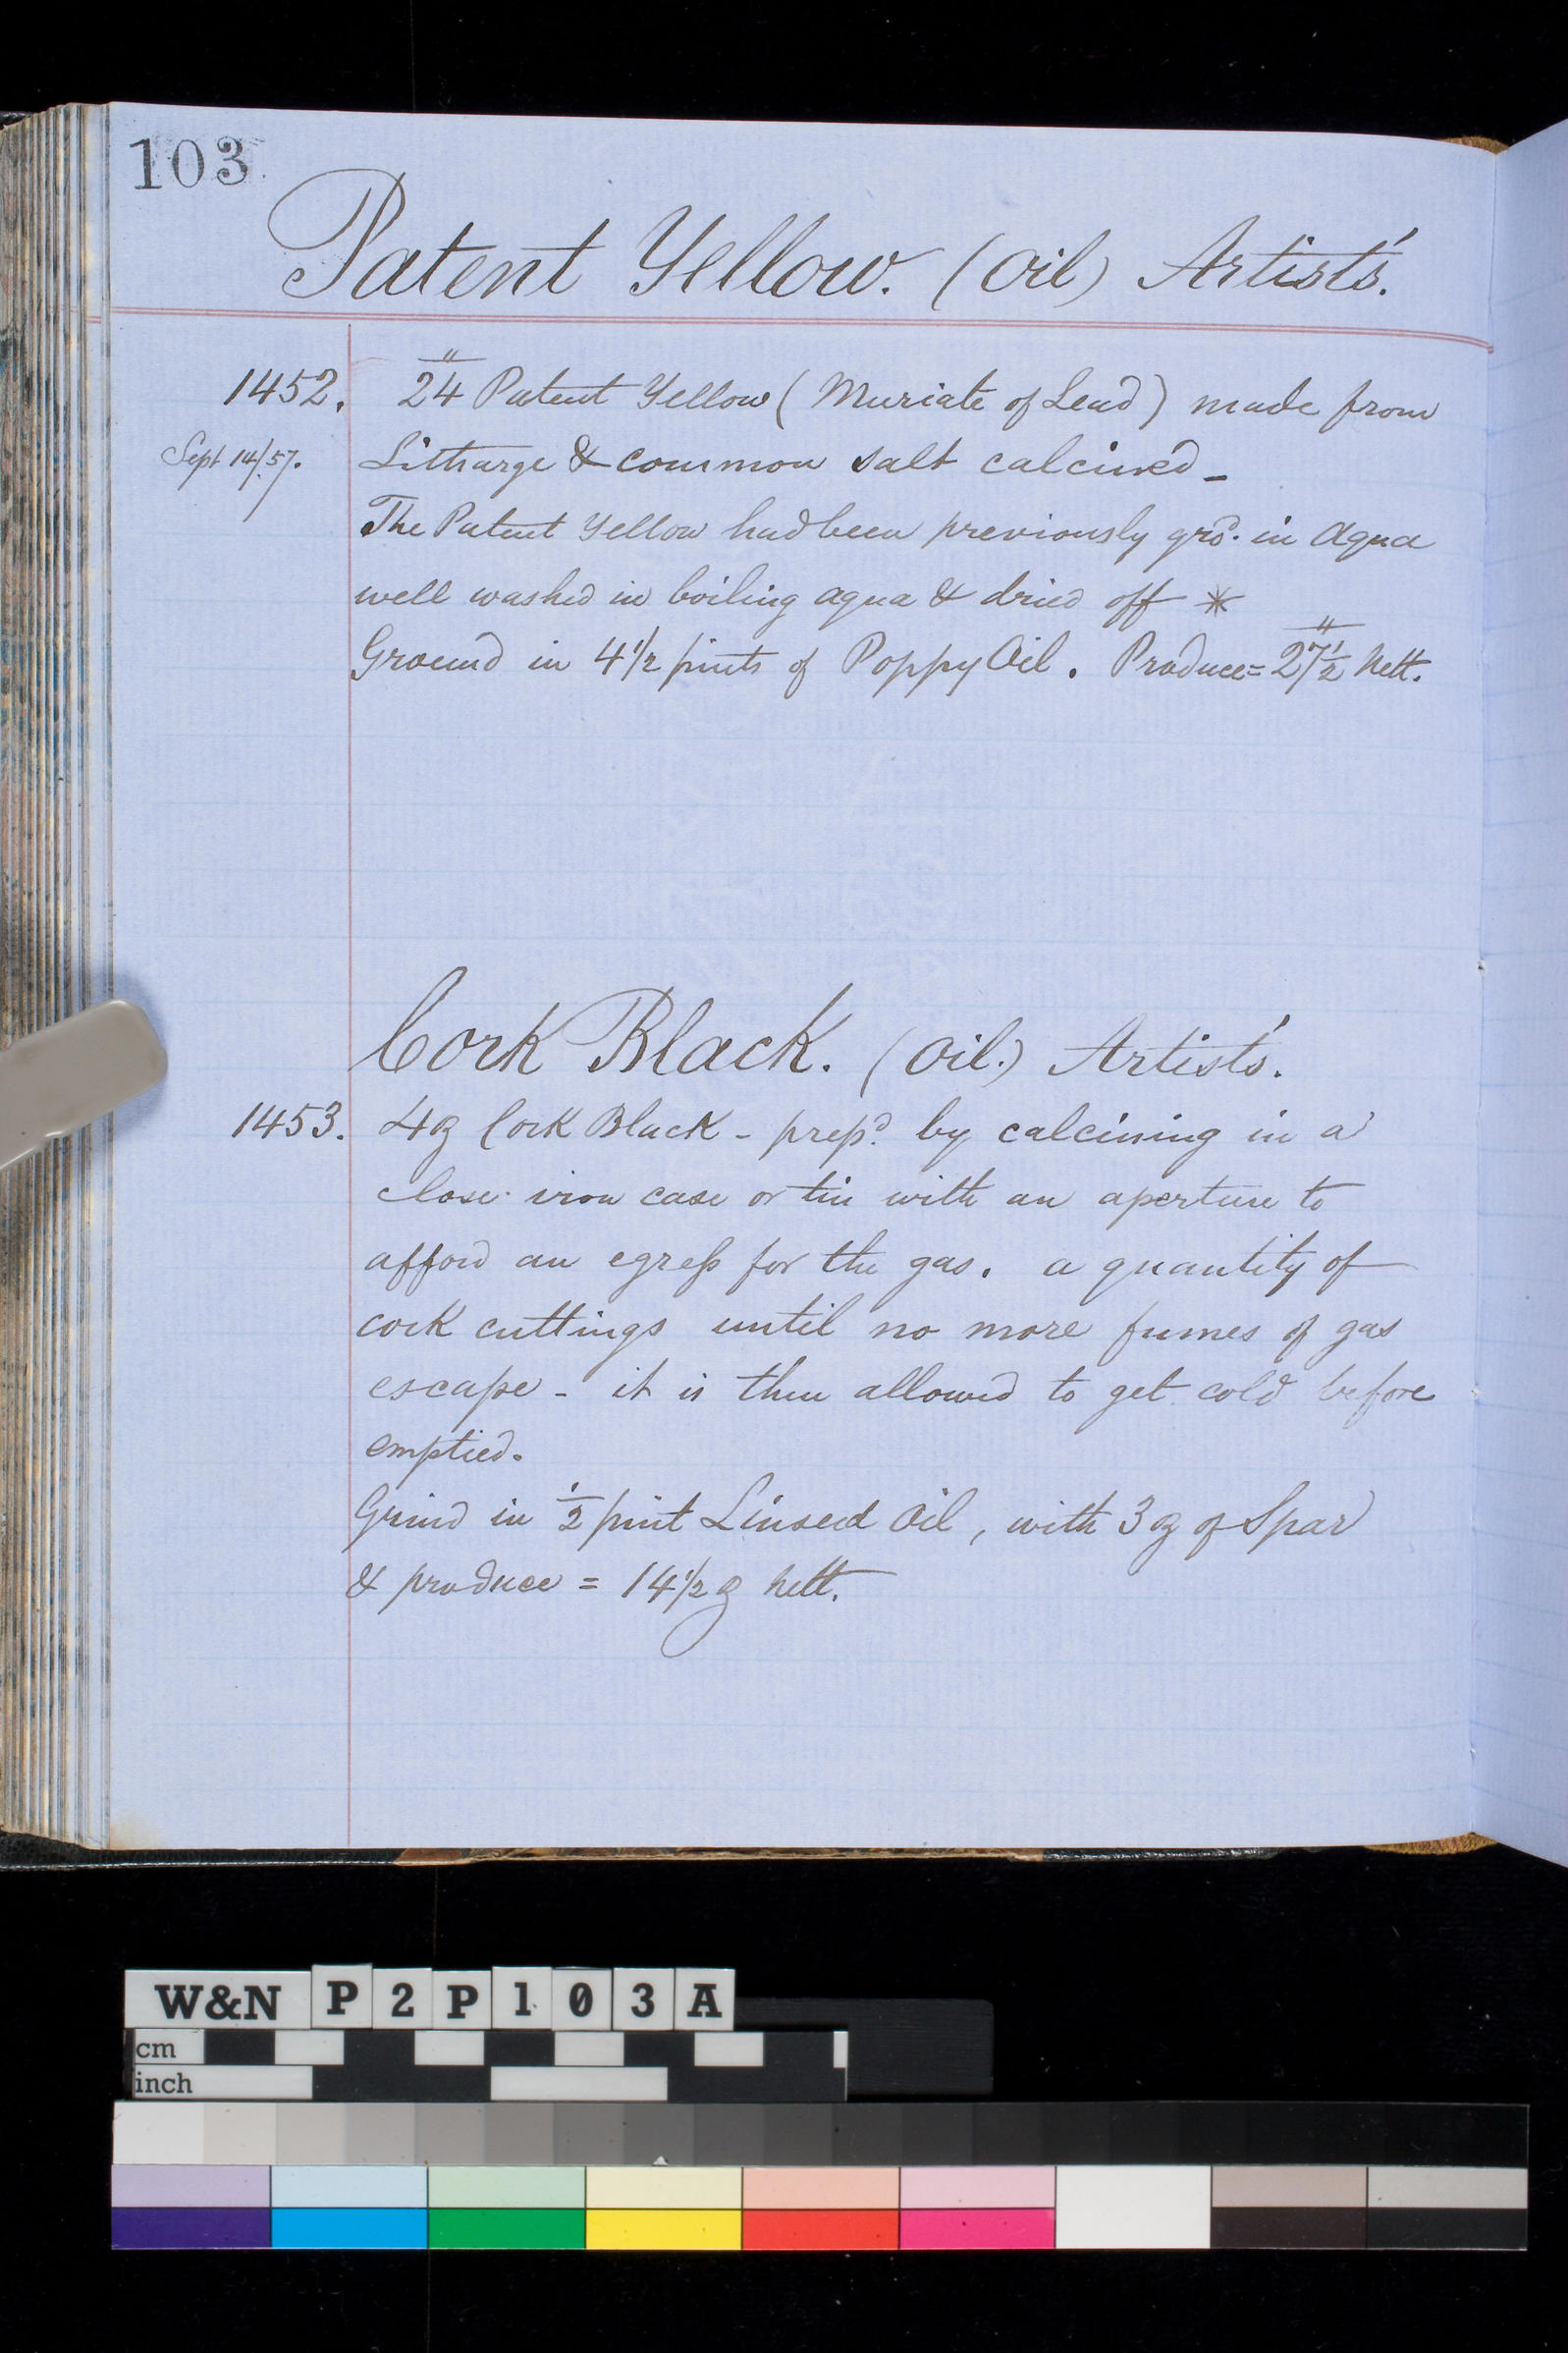 103
Patent Yellow. (Oil) Artists'.
1452. 24" Patent Yellow (Muriate of Lead) made from
Sept 14/57. Litharge & common salt calcined -
The Patent Yellow had been previously grd. in aqua
well washed in boiling aqua & dried off *
Ground in 4 1/2 pints of Poppy Oil. Produce = 27 1/2" nett.
Cork Black. (Oil.) Artists'.
1453. 4 ℥ Cork Black - prepd. by calcining in a
close iron case or tin with an aperture to
afford an egress for the gas. a quantity of
cork cuttings until no more fumes of gas
escape - it is then allowed to get cold before
emptied.
Grind in 1/2 pint Linseed Oil, with 3 ℥ of Spar
& produce = 14 1/2 ℥ nett.
W&N P2P103A
cm
inch